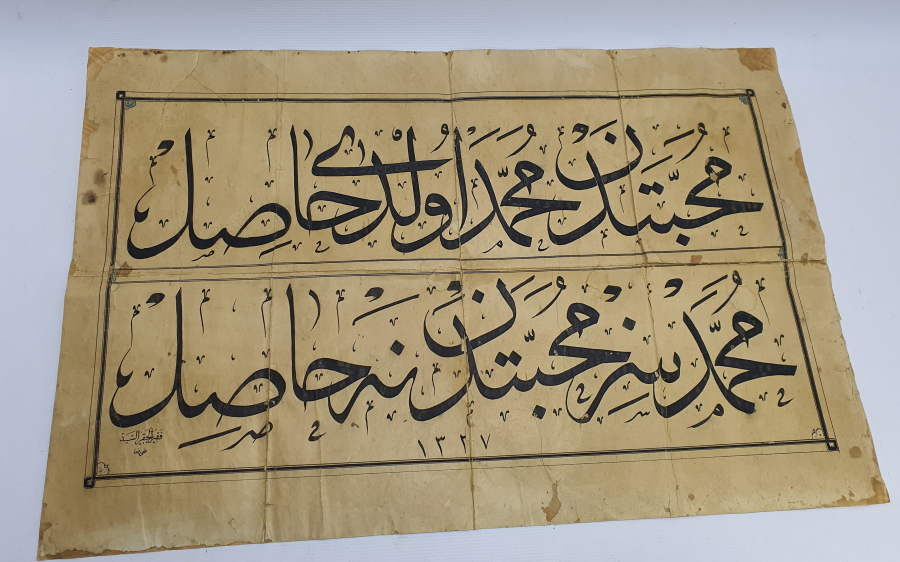 محبتدن محمد اولدی حاصل
محمدسز محبتدن نه حاصل
١٣٢٧